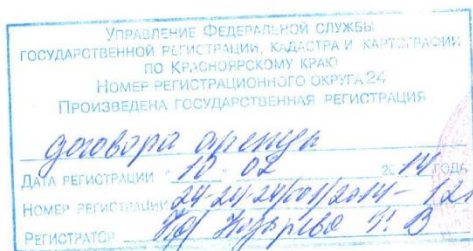 УПРАВЛЕНИЕ ФЕДЕРАЛЬНОЙ СЛУЖБЫ
ГОСУДАРСТВЕННОЙ РЕГИСТРАЦИИ, КАДАСТРА И КАРТОГРАФИИ
ПО КРАСНОЯРСКОМУ КРАЮ
НОМЕР РЕГИСТРАЦИОННОГО ОКРУГА 24
ПРОИЗВЕДЕНА ГОСУДАРСТВЕННАЯ РЕГИСТРАЦИЯ
договора аренды
ДАТА РЕГИСТРАЦИИ "10" 02 2014 ГОДА
НОМЕР РЕГИСТРАЦИИ 24-24-24/001/2014-12
РЕГИСТРАТОР